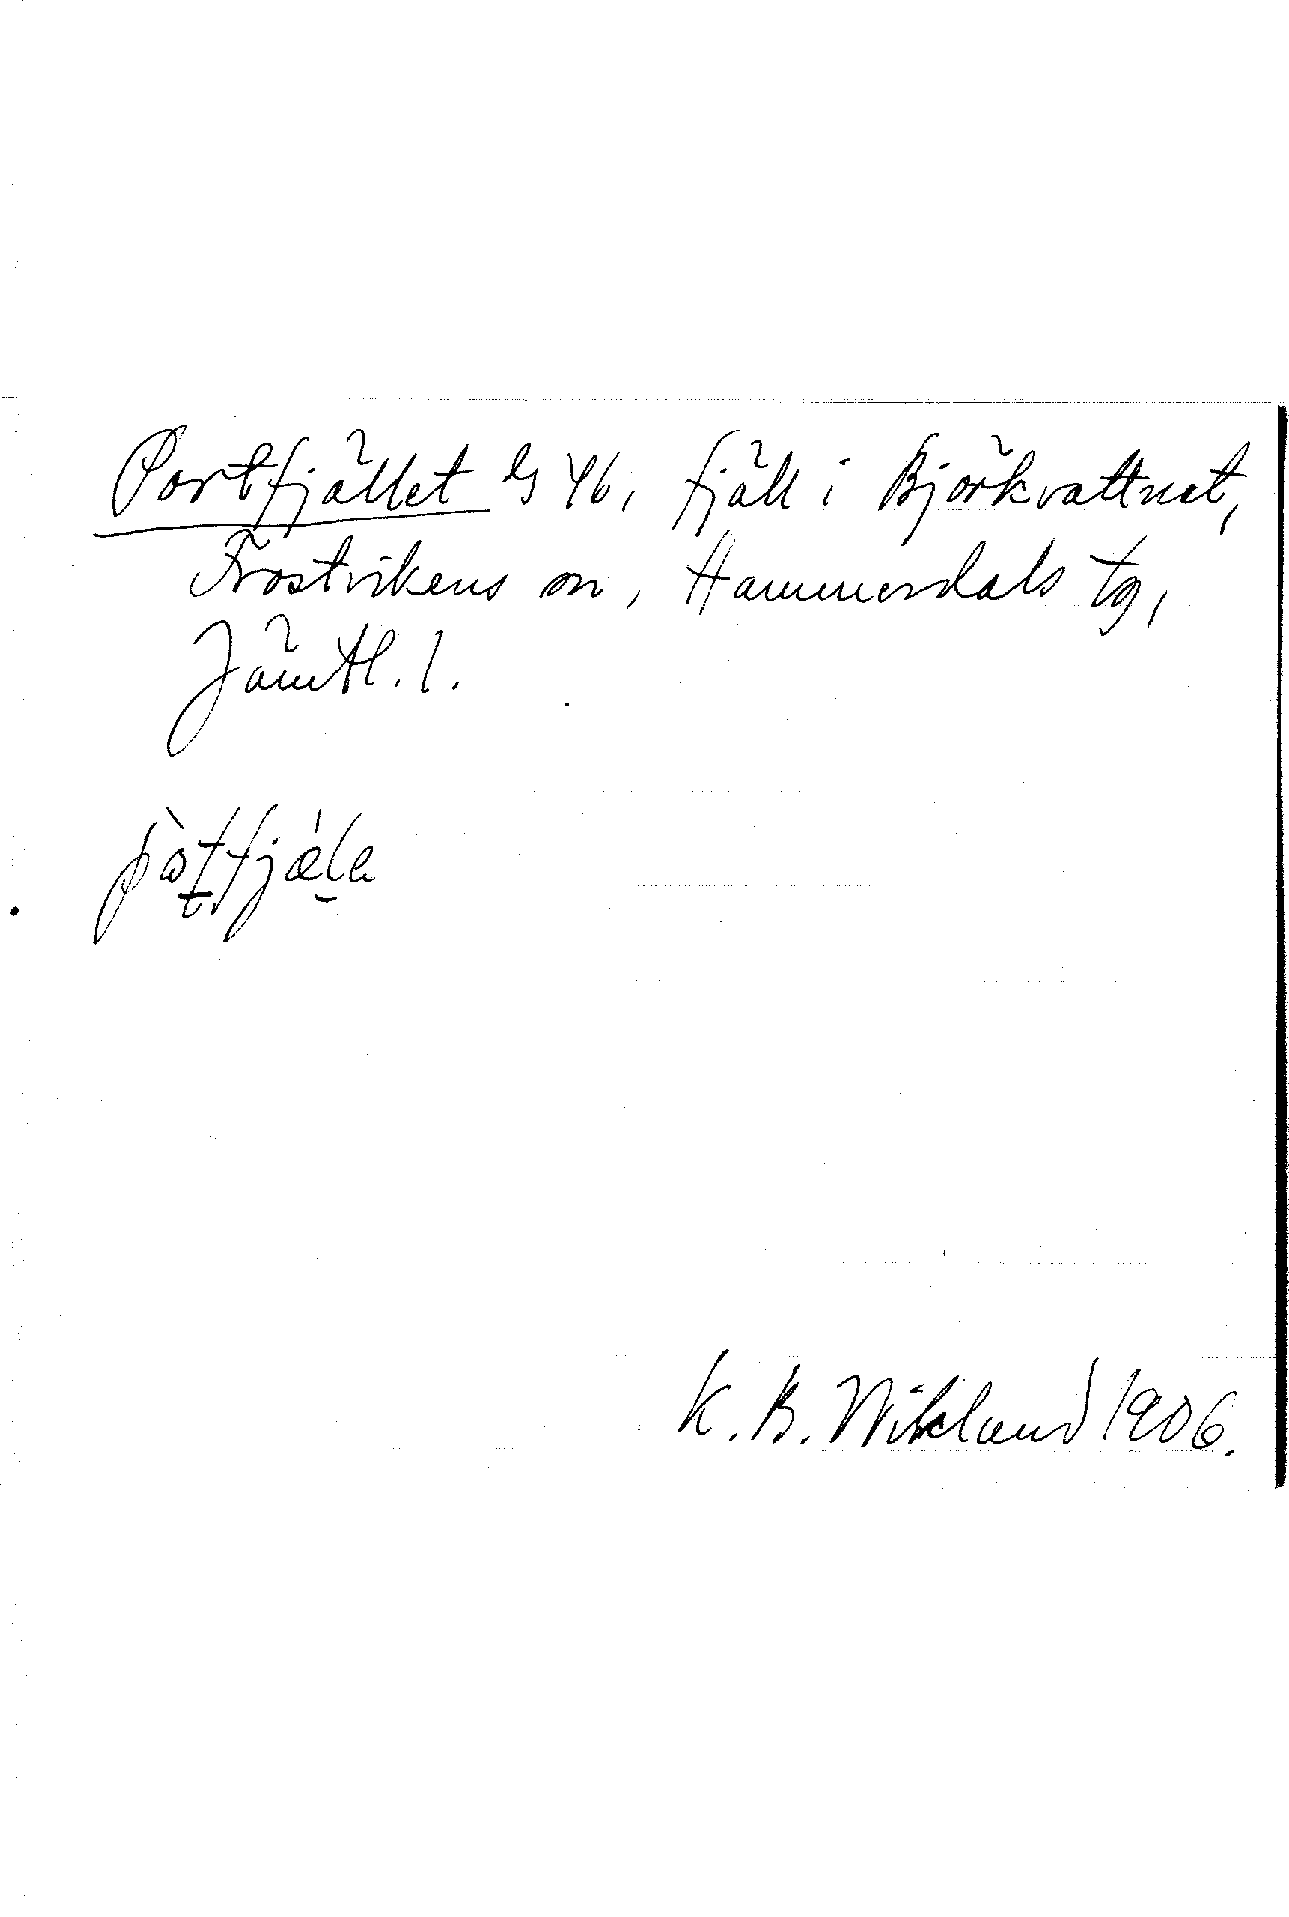 Portfjället G 46, fjäll i Björkvattnet,
Frostvikens sn, Hammerdals tg,
Jämtl. l.
K. B. Wiklund 1906.